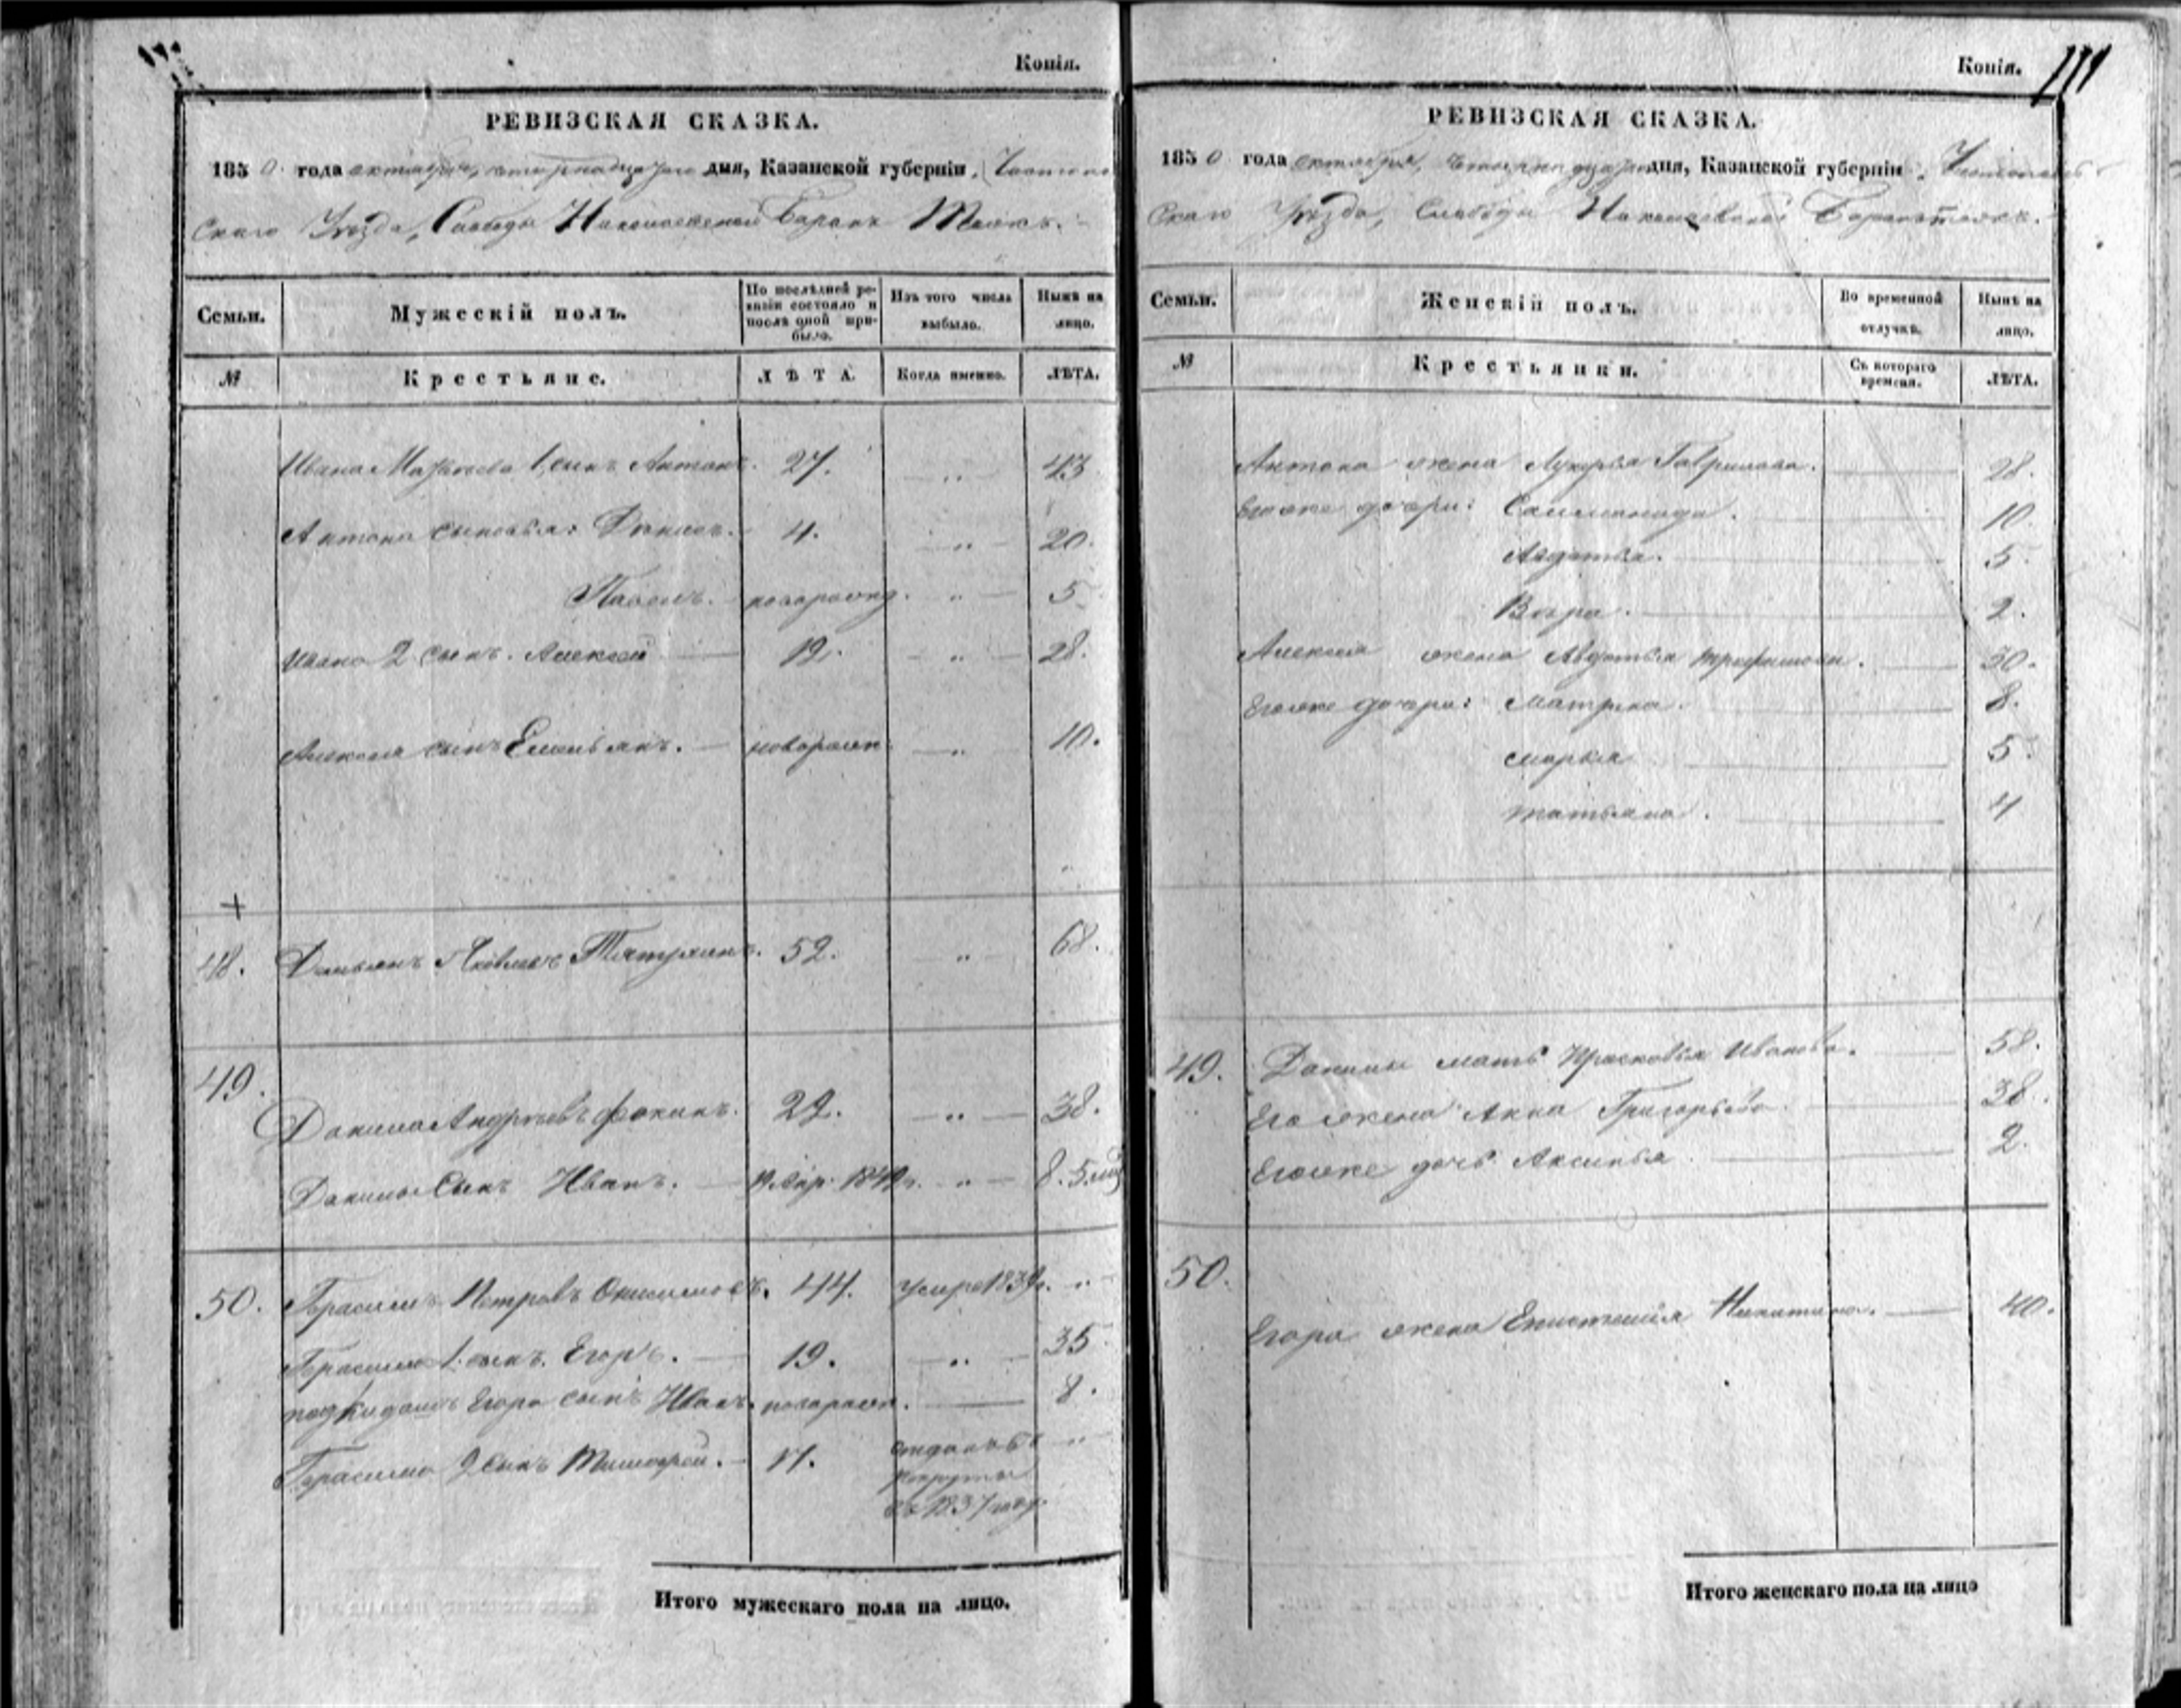 Копія.
РЕВИЗСКАЯ СКАЗКА.
1850 года октября, дня, Казанской губерніи,
скаго Уѣзда, Слободы Николаевской Баранъ
Семьи.
Мужескій полъ.
По послѣдней ревизіи состояло и послѣ оной прибыло.
Изъ того числа выбыло.
Нынѣ на лицо.
№
Крестьяне.
ЛѢТА.
Когда именно.
ЛѢТА.
Ивана 1, сынъ Антонъ. 27. „ 43
Антона сыновья: 4. „ 20.
Павелъ. новорожд. „ 5
Ивана 2 сынъ. Алексей 12. „ 28.
Алексея сынъ Емельянъ. новорожд. „ 10.
48. Демьянъ Яковлевъ 52. „ 68.
49.
Данила Андреевъ Фокинъ. 22. „ 38.
Данилы Сынъ Иванъ. „ 8. 5
50. Герасимъ Петровъ Онисимовъ. 44. умре 1839г. „
Герасима 1. сынъ. Егоръ. 19. „ 35
подкидышъ Егора сынъ Иванъ. новорожд. 8.
Герасима 2 сынъ Тимофей. 17. отданъ въ „
рекруты
въ 1837 году.
Итого мужескаго пола на лицо.
Копія. 111
РЕВИЗСКАЯ СКАЗКА.
1850 года октября, дня, Казанской губерніи,
скаго Уѣзда, Слободы Николаевской
Семьи.
Женскій полъ.
Во временной отлучкѣ.
Нынѣ на лицо.
№
Крестьянки.
Съ котораго времени.
ЛѢТА.
Антона жена Лукерья Гаврилова. 28.
Егоже дочери: 10.
Авдотья. 5.
Вера. 2.
Алексея жена Авдотья Трофимова. 30.
Егоже дочери: Матрена. 8.
Марья 5.
Татьяна. 4
49. Данилы мать Прасковья Иванова. 58.
Его жена Анна Григорьева. 38.
Егоже дочь Аксинья. 2.
50.
Егора жена Никитина. 40.
Итого женскаго пола на лицо